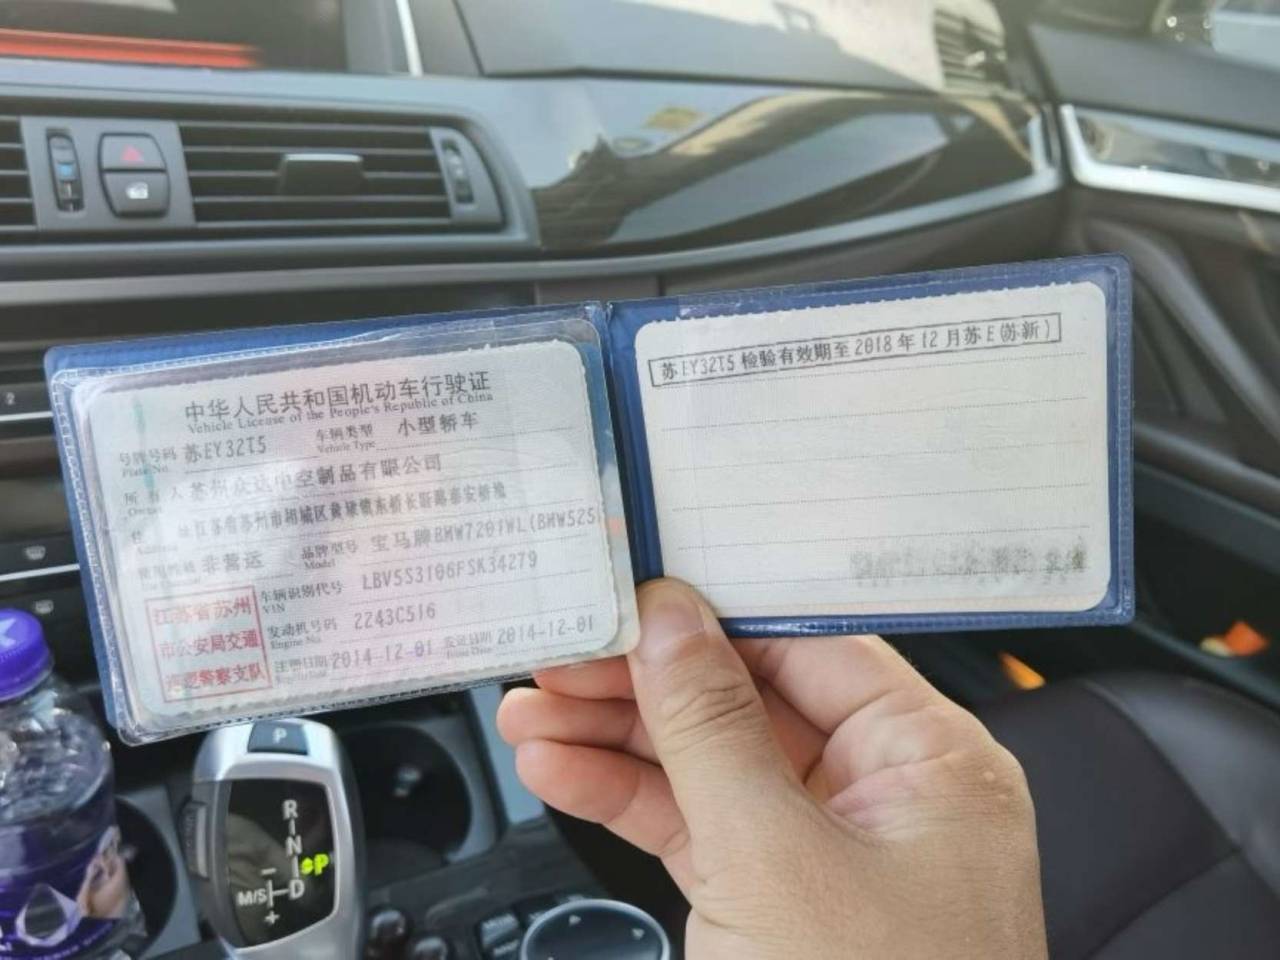 中华人民共和国机动车行驶证
Vehicle License of the People's Republic of China
号牌号码 苏EY32T5 车辆类型 小型轿车
Plate No. Vehicle Type
所有人 苏州众达中空制品有限公司
Owner
住 址 江苏省苏州市相城区黄埭镇东桥长旺路泰安桥堍
Address
使用性质 非营运 品牌型号 宝马牌BMW7201WL(BMW525
Model
江苏省苏州
市公安局交通
巡逻警察支队
车辆识别代号 LBV5S3106FSK34279
VIN
发动机号码 2243C516
Engine No.
注册日期 2014-12-01 发证日期 2014-12-01
Issue Date
苏EY32T5 检验有效期至2018年12月苏E(苏新)
P
R
N
P
M/S
D
+
2